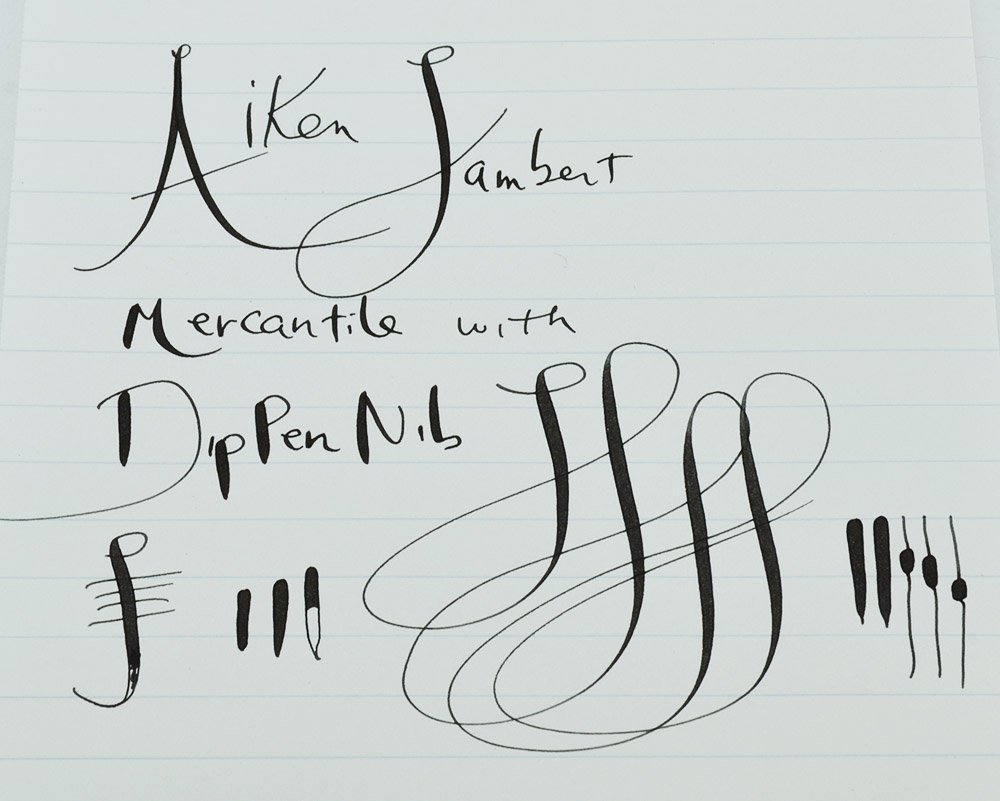 Aiken Lambert
Mercantile with
Dip Pen Nib